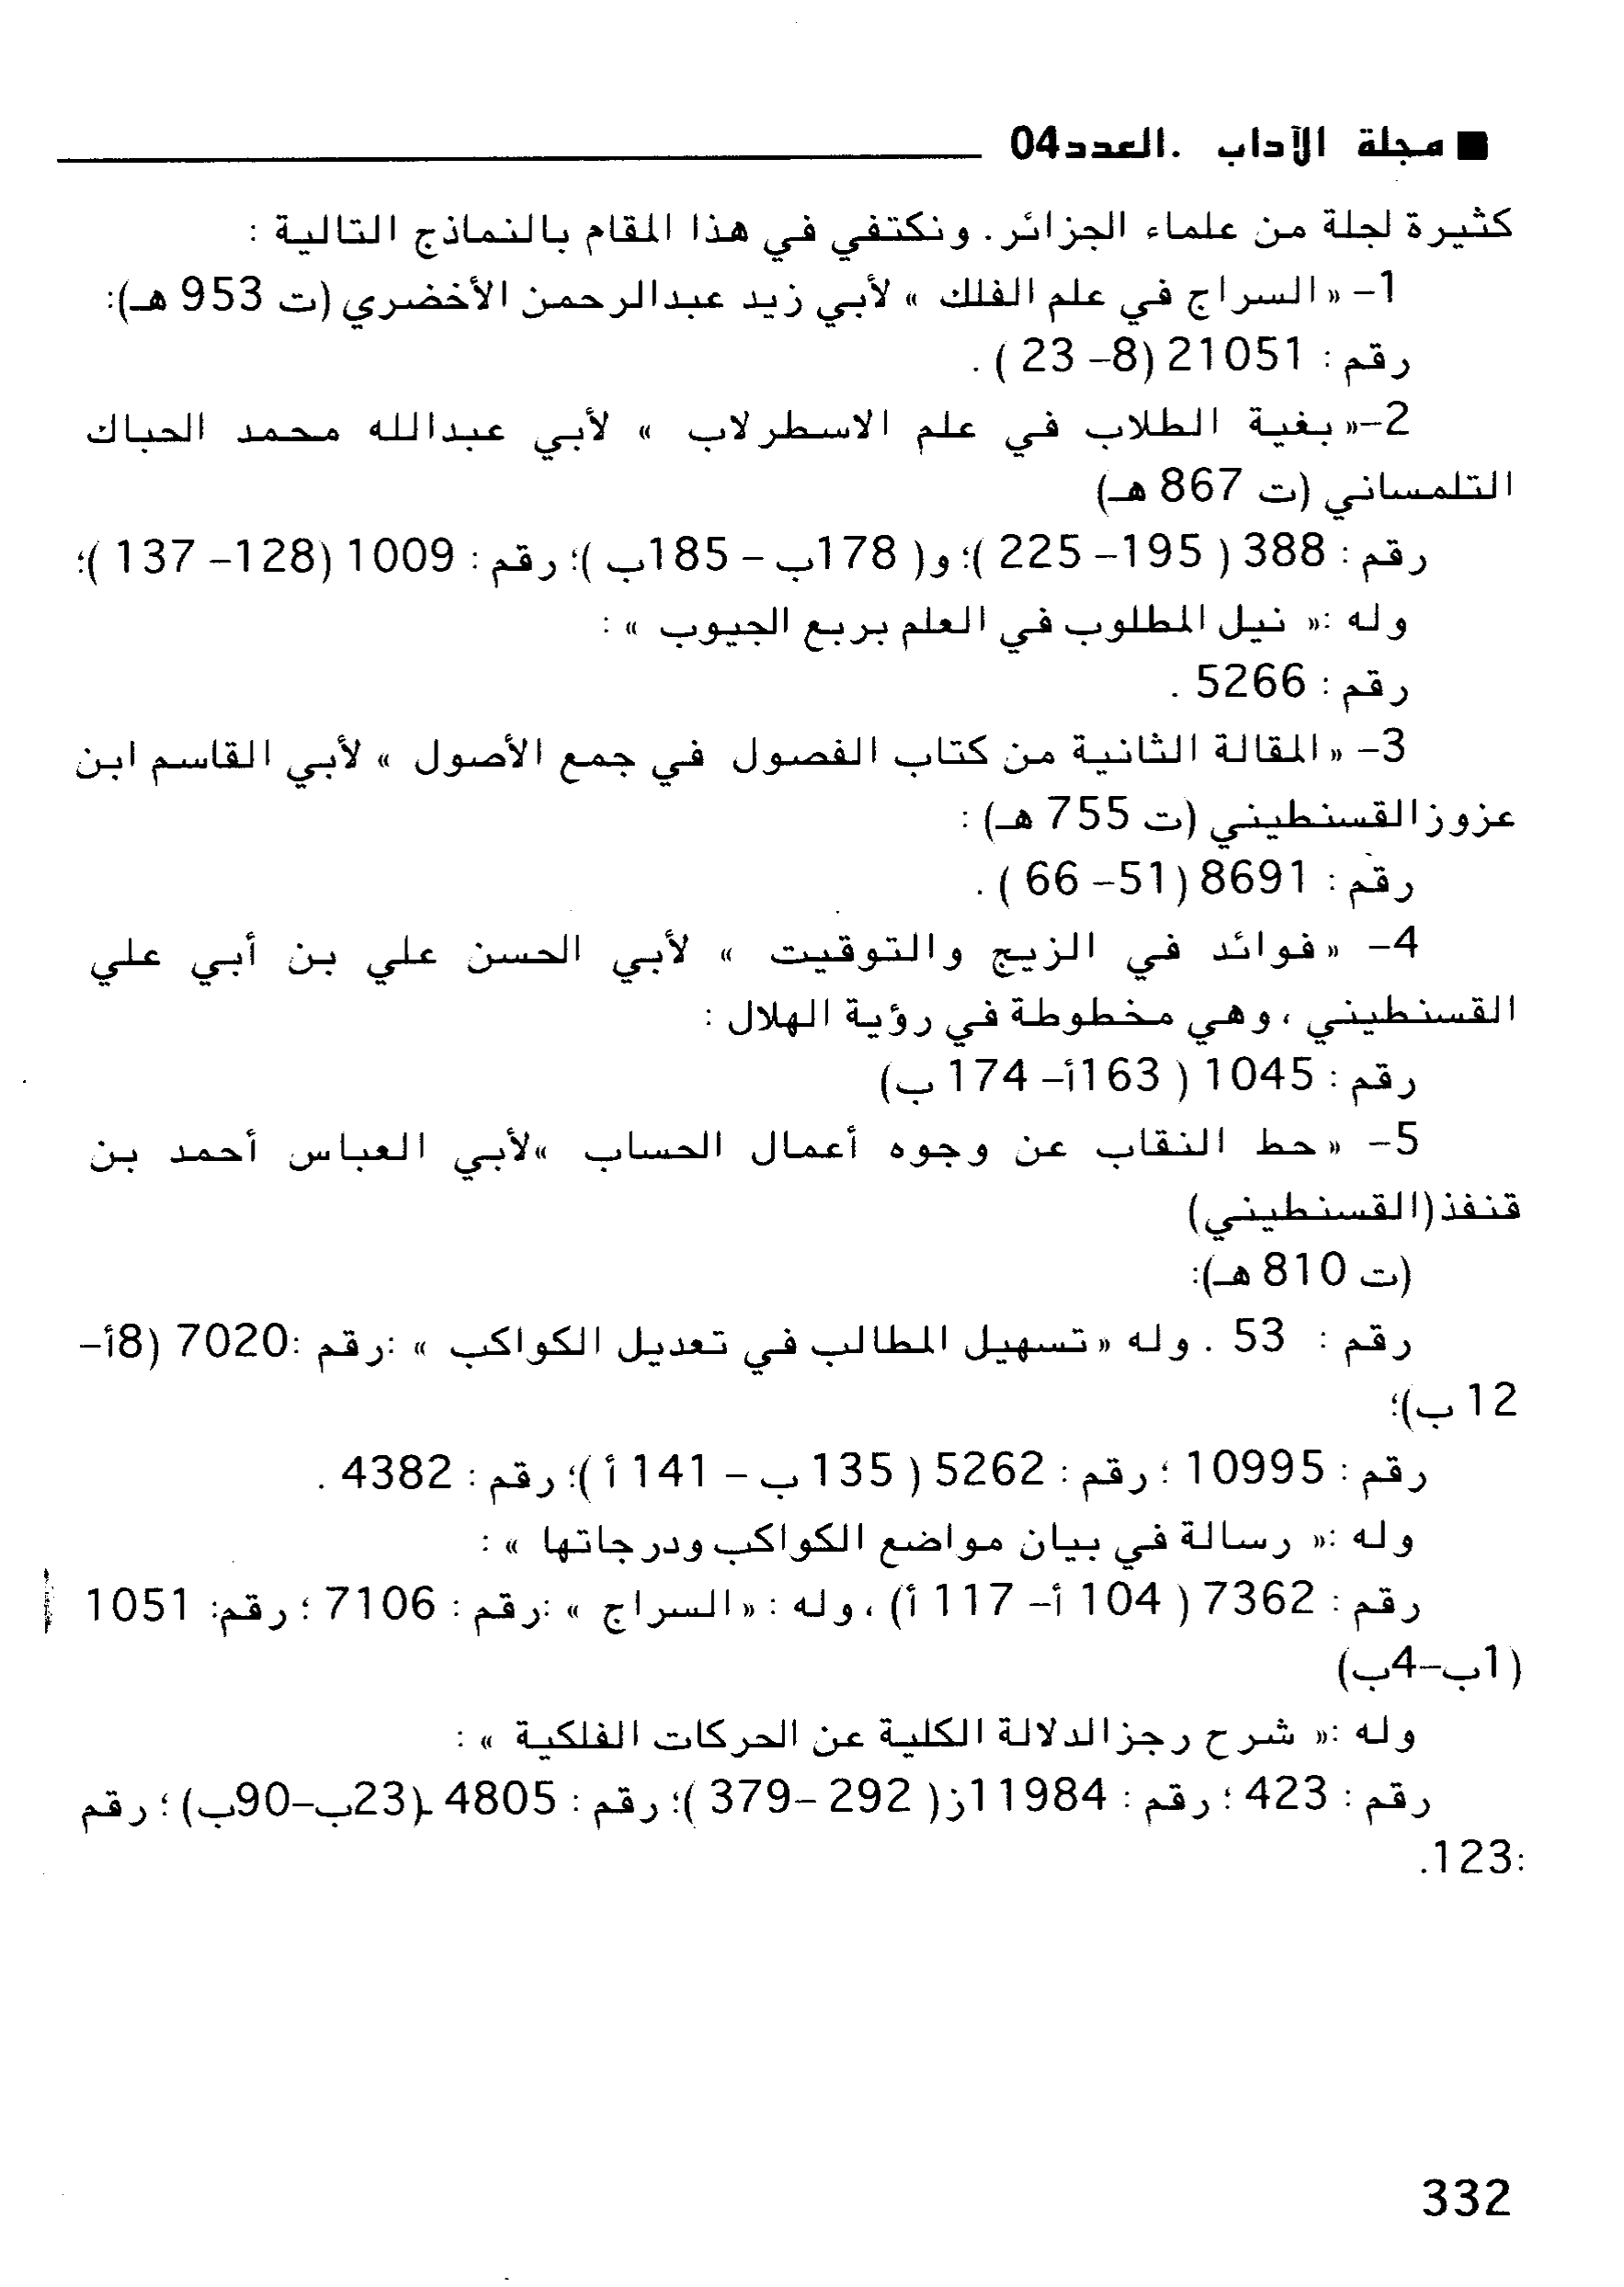 ■ مجلة الآداب .العدد04
كثيرة لجلة من علماء الجزائر. ونكتفي في هذا المقام بالنماذج التالية :
1- «السراج في علم الفلك » لأبي زيد عبدالرحمن الأخضري (ت 953 هـ):
رقم : 21051 (8- 23 ) .
2-«بغية الطلاب في علم الاسطرلاب » لأبي عبدالله محمد الحباك
التلمساني (ت 867 هـ)
رقم : 388 ( 195- 225 )؛ و( 178ب - 185ب )؛ رقم : 1009 (128- 137 )؛
وله :« نيل المطلوب في العلم بربع الجيوب » :
رقم : 5266 .
3- «المقالة الثانية من كتاب الفصول في جمع الأصول » لأبي القاسم ابن
عزوزالقسنطيني (ت 755 هـ) :
رقم : 8691 (51- 66 ) .
4- «فوائد في الزيج والتوقيت » لأبي الحسن علي بن أبي علي
القسنطيني ، وهي مخطوطة في رؤية الهلال :
رقم : 1045 ( 163أ- 174 ب)
5- «حط النقاب عن وجوه أعمال الحساب »لأبي العباس أحمد بن
قنفذ(القسنطيني)
(ت 810 هـ):
رقم : 53 . وله «تسهيل المطالب في تعديل الكواكب » :رقم :7020 (8أ-
12 ب)؛
رقم : 10995 ؛ رقم : 5262 ( 135 ب - 141 أ )؛ رقم : 4382 .
وله :« رسالة في بيان مواضع الكواكب ودرجاتها » :
رقم : 7362 ( 104 أ- 117 أ) ، وله : «السراج » :رقم : 7106 ؛ رقم: 1051
(1ب-4ب)
وله :« شرح رجزالدلالة الكلية عن الحركات الفلكية » :
رقم : 423 ؛ رقم : 11984ز( 292 -379 )؛ رقم : 4805 (23ب-90ب) ؛ رقم
:123.
332